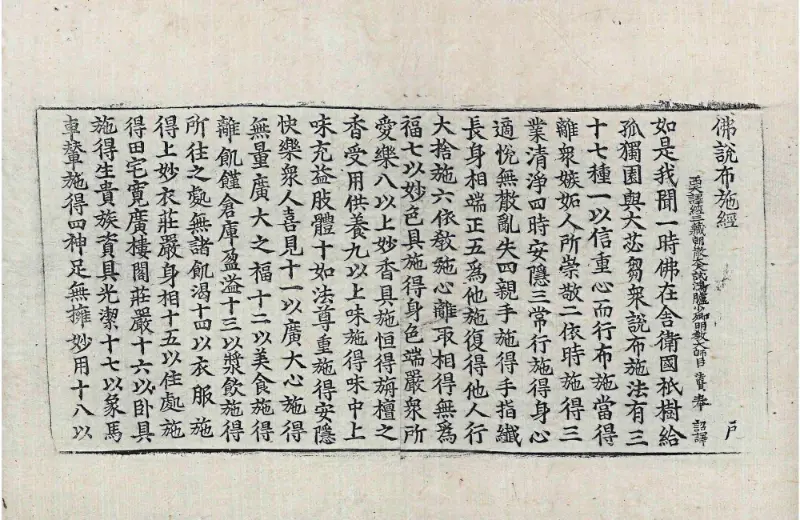 佛說布施經
西天譯經三藏朝散大夫試鴻臚少卿明教大師臣法賢奉 詔譯
尸
如是我聞一時佛在舍衛國祇樹給
孤獨園與大苾芻衆說布施法有三
十七種一以信重心而行布施當得
離衆嫉妬人所崇敬二依時施得三
業清淨四時安隱三常行施得身心
適悅無散亂失四親手施得手指纖
長身相端正五爲他施復得他人行
大捨施六依敎施心離取相得無爲
福七以妙色具施得身色端嚴衆所
愛樂八以上妙香具施恒得旃檀之
香受用供養九以上味施得味中上
味充益肢體十如法尊重施得安隱
快樂衆人喜見十一以廣大心施得
無量廣大之福十二以美食施得
離飢饉倉庫盈溢十三以漿飲施得
所往之處無諸飢渴十四以衣服施
得上妙衣莊嚴身相十五以住處施
得田宅寬廣樓閣莊嚴十六以卧具
施得生貴族資具光潔十七以象馬
車輦施得四神足無擁妙用十八以